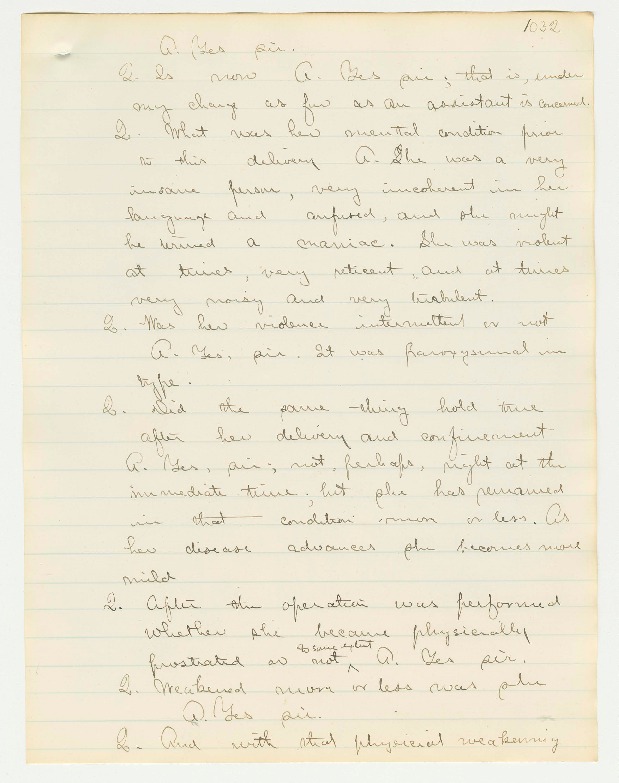 1032
A. Yes sir.
Q. Is now A. Yes sir; that is, under
my charge as far as an assistant is concerned.
Q. What was her mental condition prior
to this delivery A. She was a very
insane person, very incoherent in her
language and confused, and she might
be termed a maniac. She was violent
at times, very reticent, and at times
very noisy and very turbulent.
Q. Was her violence intermittent or not
A. Yes, sir. It was paroxysmal in
type.
Q. Did the same thing hold true
after her delivery and confinement
A. Yes, sir; not, perhaps, right at the
immediate time, but she has remained
in that condition more or less. As
her disease advances she becomes more
mild
Q. After the operation was performed
whether she became physically
to some extent
prostrated or not ^ A. Yes sir.
Q. Weakened more or less was she
A. Yes sir.
Q. And with that physicial weakening